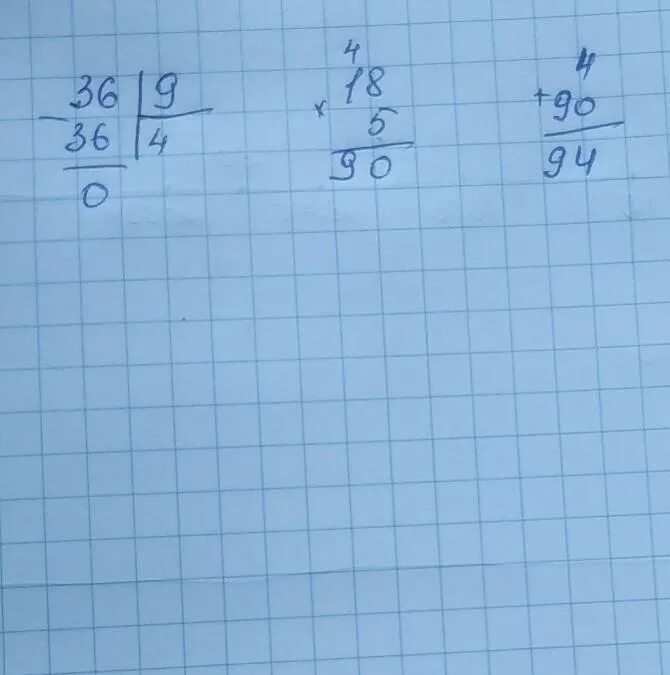 36 9
− 36 4
0
4
× 18
5
90
4
+ 90
94